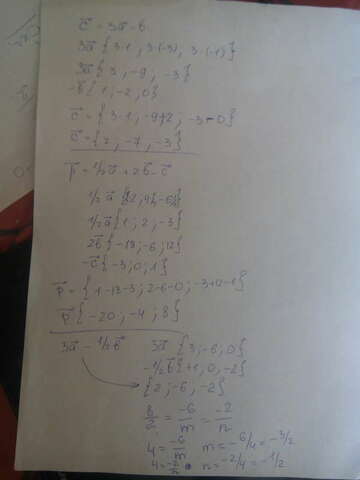 c⃗ = 3a⃗ - b⃗
3a⃗ {3·1, 3·(-3), 3·(-1)}
3a⃗ {3, -9, -3}
-b⃗ {1, -2, 0}
c⃗ = {3-1, -9+2, -3-0}
c⃗ = {2, -7, -3}
p⃗ = 1/2a⃗ + 2b⃗ - c⃗
1/2 a⃗ {2; 4; -6}
1/2a⃗ {1; 2; -3}
2b⃗ {-18; -6; 12}
-c⃗ {-3; 0; 1}
p⃗ = {1-18-3; 2-6-0; -3+12-1}
p⃗ {-20; -4; 8}
3a⃗ - 1/2b⃗ 3a⃗ {3; -6, 0}
-1/2b⃗ {+1, 0, -2}
{2; -6, -2}
8/2 = -6/m = -2/n
4 = -6/m m = -6/4 = -3/2
4 = -2/n n = -2/4 = -1/2